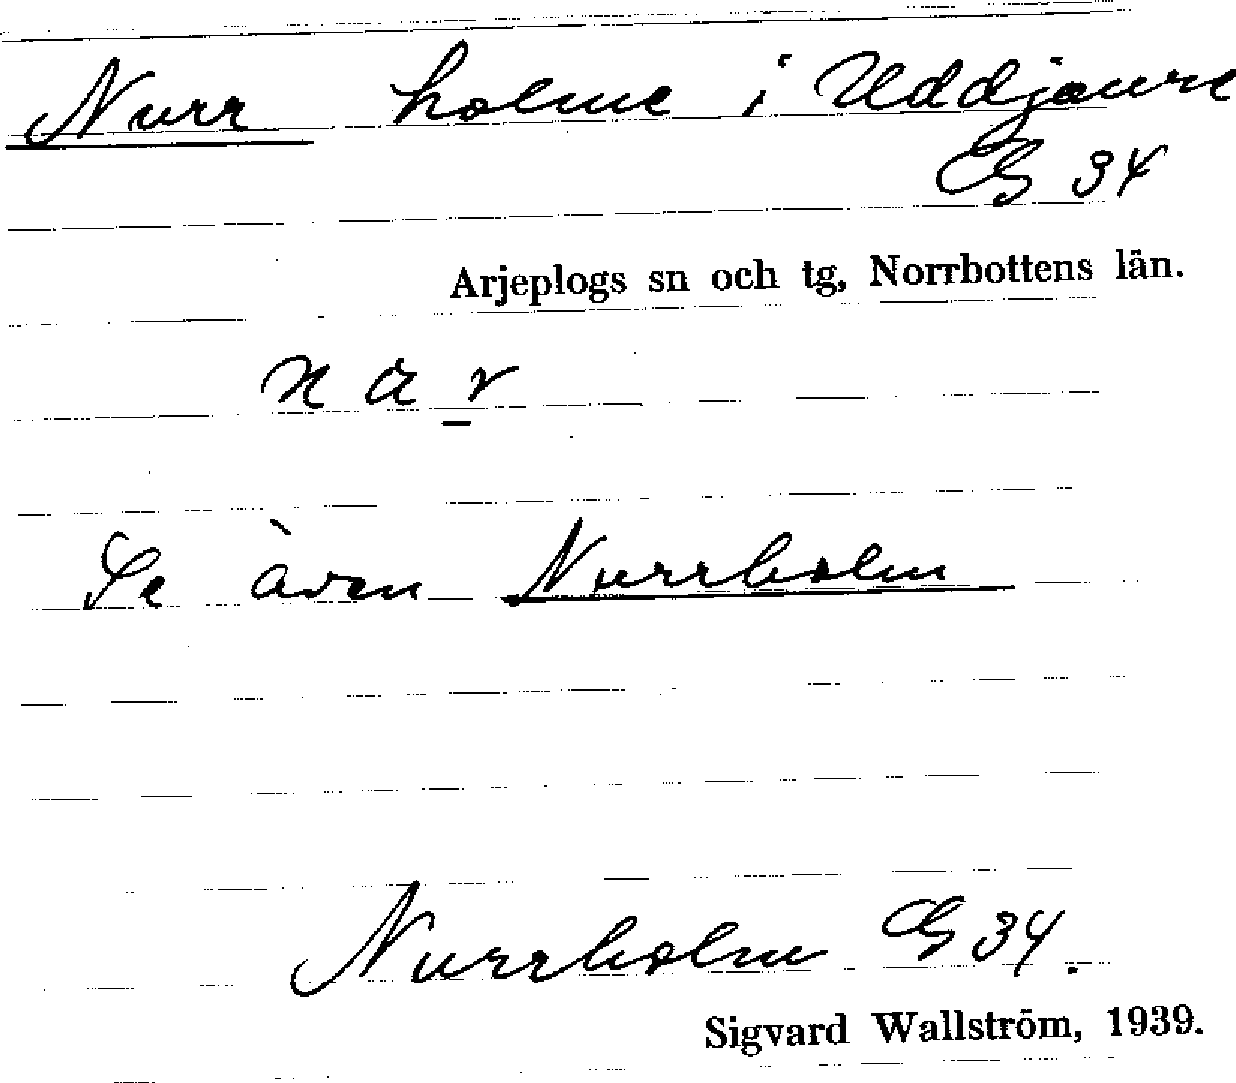 Nurr holme i Uddjaure
G 34
Arjeplogs sn och tg, Norrbottens län.
Se även Nurrholm
Nurrholm G 34.
Sigvard Wallström, 1939.